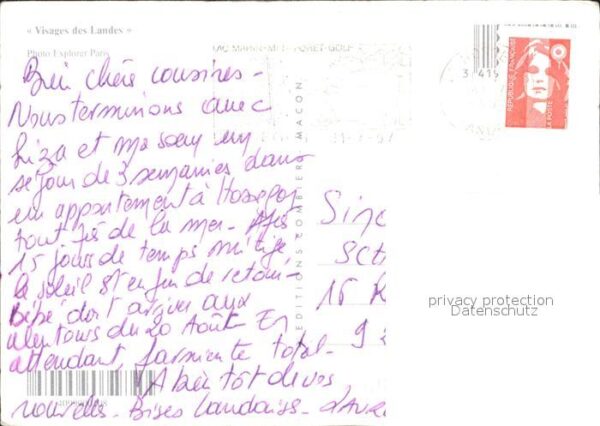 « Visages des Landes »
Photo Explorer Paris
Bien chères cousines -
Nous terminions avec
Liza et ma soeur un
séjour de 3 semaines dans
un appartement à Hossegor
tout près de la mer - Après
15 jours de temps mitigé
le soleil est enfin de retour -
Bébé doit arriver aux
alentours du 20 Août - En
attendant, farniente total -
A bientôt de vos
nouvelles - Bises landaises -
EDITIONS COMBIER MACON
REPUBLIQUE FRANÇAISE
LA POSTE
15
9
privacy protection
Datenschutz